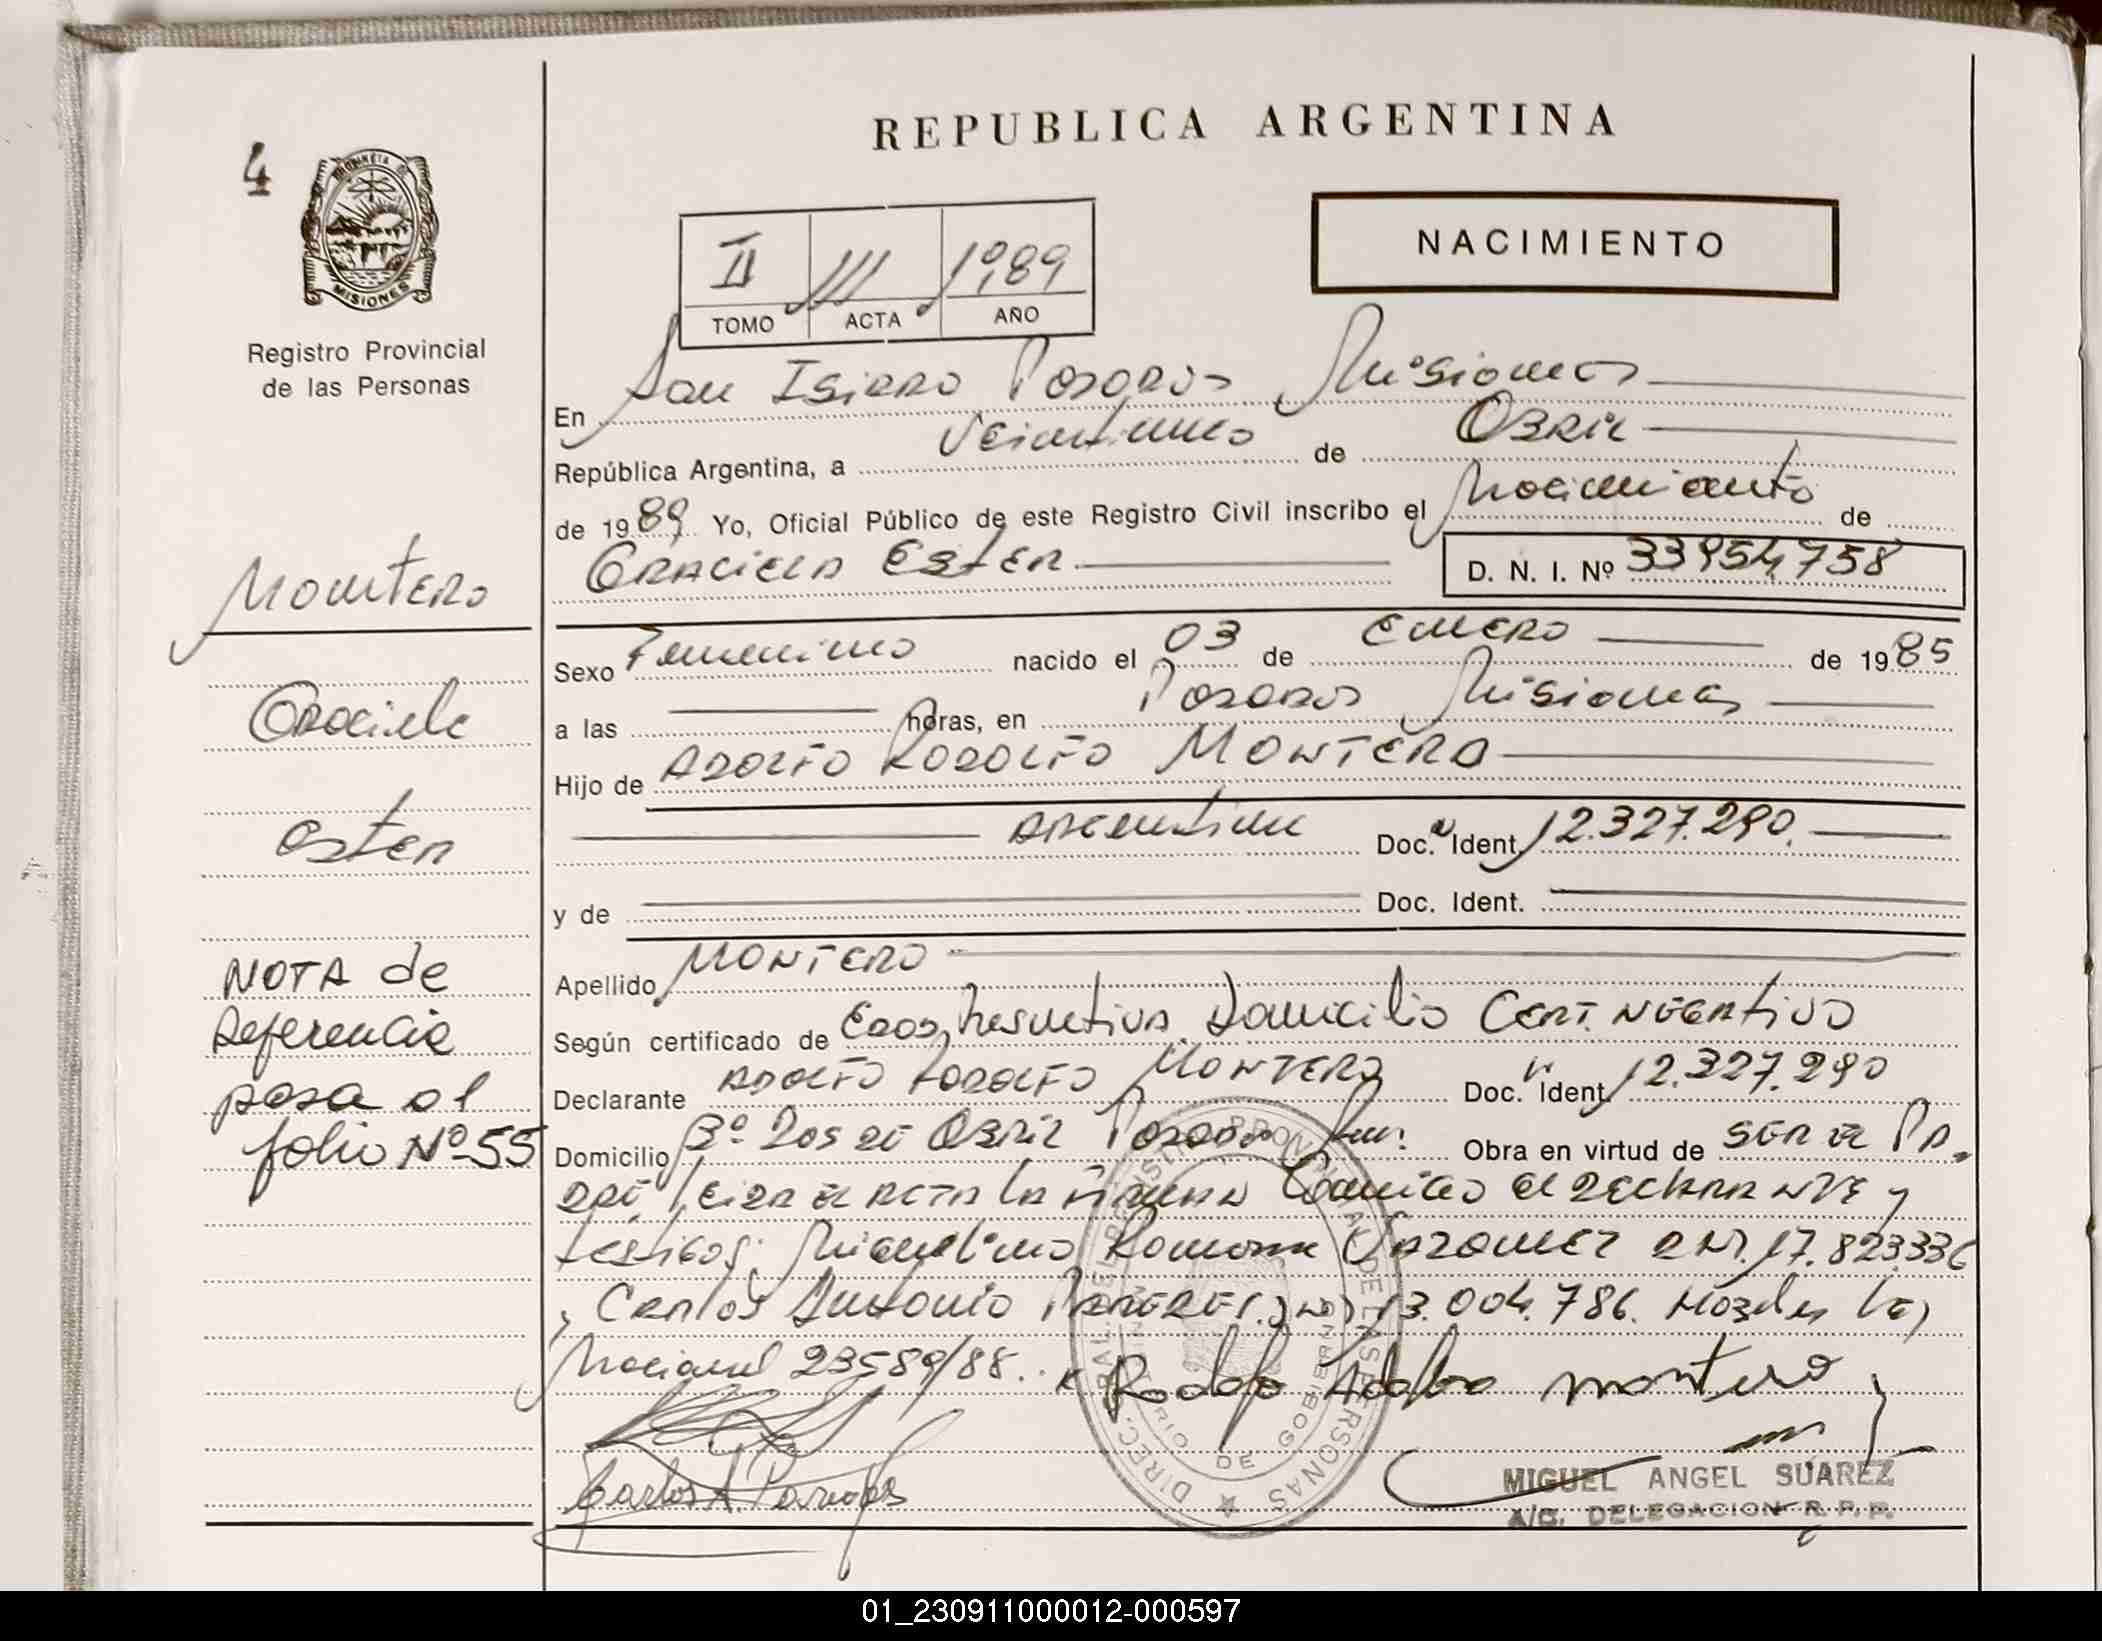 REPUBLICA ARGENTINA
4
PROVINCIA DE
MISIONES
Registro Provincial
de las Personas
NACIMIENTO
II 111 1989
TOMO ACTA AÑO
En San Isidro Posadas Misiones
República Argentina, a Veintiuno de Abril
de 1989 Yo, Oficial Público de este Registro Civil inscribo el Nacimiento de
Graciela Ester D. N. I. Nº 33954758
Montero
Graciela
Ester
Sexo Femenino nacido el 03 de Enero de 1985
a las horas, en Posadas Misiones
Hijo de Adolfo Rodolfo Montero
Argentina Doc. N Ident. 12.327.290.
y de Doc. Ident.
Apellido Montero
Según certificado de Edad, Domicilio Cert. Negativo
Declarante Adolfo Rodolfo Montero Doc. N Ident. 12.327.290
Domicilio Bº 2 de Abril Posadas Mnes. Obra en virtud de ser el Pa
dre, leida el acta la firman Conmigo el declarante y
testigos: Ramona DNI. 17.823.336
y Carlos Antonio DNI) 13.004.786. Ley
Nacional 23589/88..
NOTA de
Referencia
pasa al
folio Nº 55
Rodolfo Adolfo montero
Carlos A. Paredes
DIREC. GRAL. DEL REGISTRO PROVINCIAL DE LAS PERSONAS
MINISTERIO DE GOBIERNO
MIGUEL ANGEL SUAREZ
A/C. DELEGACION R. P. P.
01_230911000012-000597